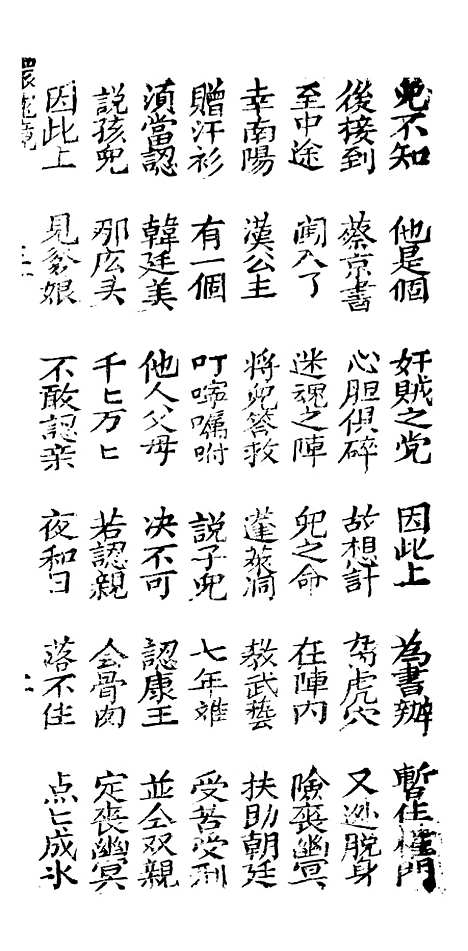 兒不知 他是個 奸賊之党 因此上 為書辦 暫住權門
後接到 蔡京書 心胆俱碎 故想計 虎穴 又逃脫身
至中途 闯入了 迷魂之陣 兒之命 在陣內 險喪幽冥
幸南陽 漢公主 將兒答救 蓬萊洞 教武藝 扶助朝廷
贈汗衫 有一個 叮嚀囑咐 說子兒 七年难 受苦受刑
須當認 韓廷美 他人父母 决不可 認康王 並仝双親
說孩兒 那広头 千匕万匕 若認親 仝骨肉 定喪幽冥
因此上 見爹娘 不敢認亲 夜和日 落不住 点匕成氷